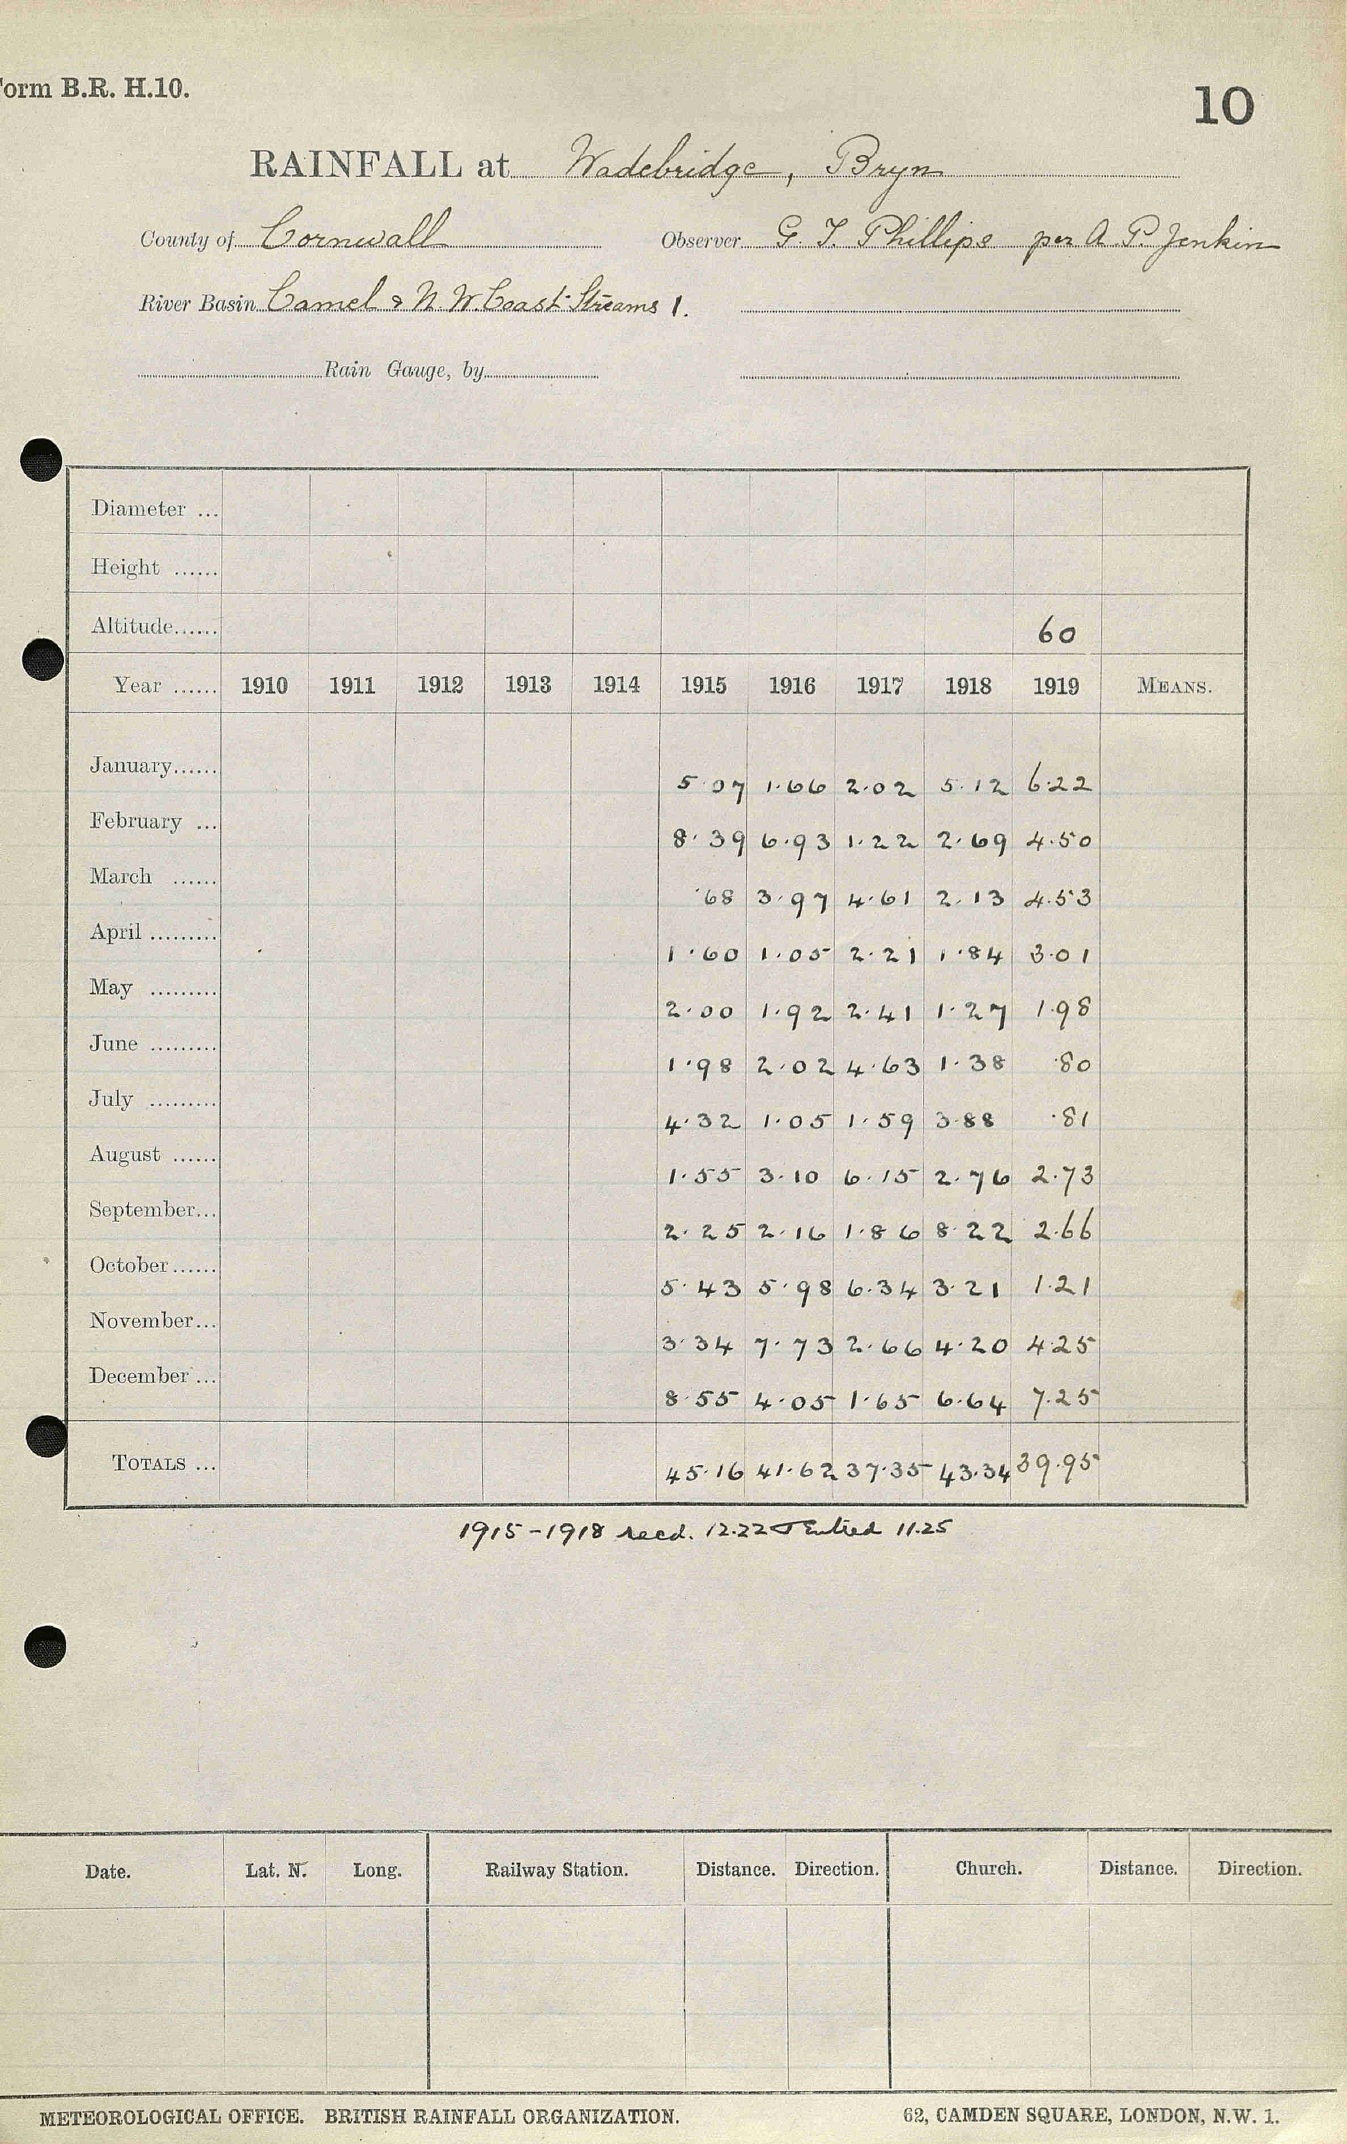 Form B.R. H.10.
10
RAINFALL at Wadebridge, Bryn
County of Cornwall Observer G. T. Phillips per A. P. Jenkin
River Basin Camel & N. W. Coast Streams 1.
Rain Gauge, by
Diameter ...
Height ......
Altitude...... 60
Year ...... 1910 1911 1912 1913 1914 1915 1916 1917 1918 1919 MEANS.
January...... 5.07 1.66 2.02 5.12 6.22
February ... 8.39 6.93 1.22 2.69 4.50
March ...... .68 3.97 4.61 2.13 4.53
April ......... 1.60 1.05 2.21 1.84 3.01
May ......... 2.00 1.92 2.41 1.27 1.98
June ......... 1.98 2.02 4.63 1.38 .80
July ......... 4.32 1.05 1.59 3.88 .81
August ...... 1.55 3.10 6.15 2.76 2.73
September... 2.25 2.16 1.86 8.22 2.66
October...... 5.43 5.98 6.34 3.21 1.21
November... 3.34 7.73 2.66 4.20 4.25
December ... 8.55 4.05 1.65 6.64 7.25
TOTALS ... 45.16 41.62 37.35 43.34 39.95
1915-1918 recd. 12.22 & Entred 11.25
Date. Lat. N. Long. Railway Station. Distance. Direction. Church. Distance. Direction.
METEOROLOGICAL OFFICE. BRITISH RAINFALL ORGANIZATION. 62, CAMDEN SQUARE, LONDON, N.W. 1.